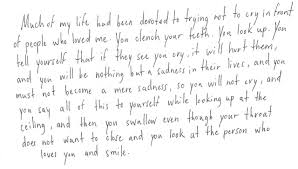 Much of my life had been devoted to trying not to cry in front
of people who loved me. You clench your teeth. You look up. You
tell yourself that if they see you cry, it will hurt them,
and you will be nothing but a sadness in their lives, and you
must not become a mere sadness, so you will not cry, and
you say all of this to yourself while looking up at the
ceiling, and then you swallow even though your throat
does not want to close and you look at the person who
loves you and smile.